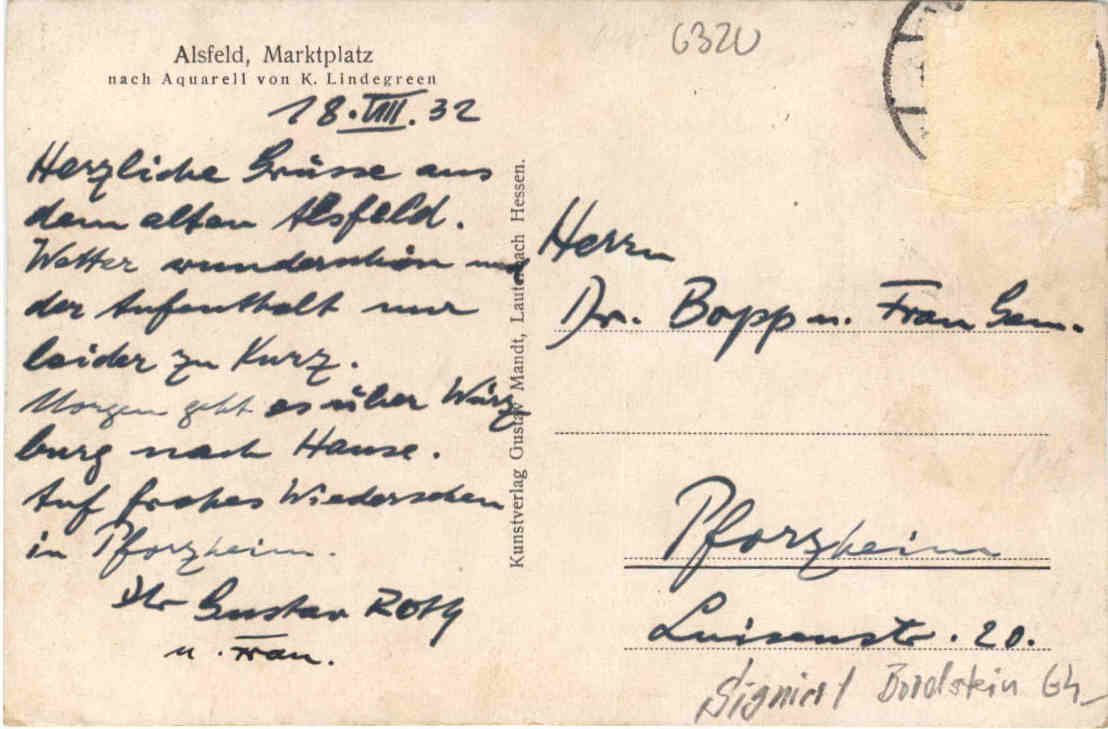 Alsfeld, Marktplatz
nach Aquarell von K. Lindegreen
18.VIII.32
Herzliche Grüsse aus
dem alten Alsfeld.
Wetter wunderschön und
der Aufenthalt nur
leider zu Kurz.
Morgen geht es über Würz
burg nach Hause.
Auf frohes Wiedersehen
in Pforzheim.
Ihr Gustav Roth
u. Frau.
Kunstverlag Gustav Mandt, Lauterbach Hessen.
6320
Herrn
Dr. Bopp u. Frau Gem.
Pforzheim
Luisenstr. 20.
Signiert